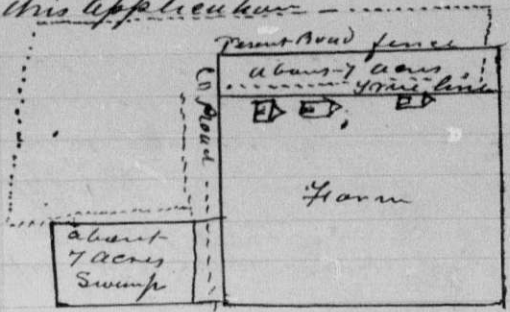 this application
Present Road fence
about 7 acres
true line
Co Road
Farm
about
7 acres
Swamp